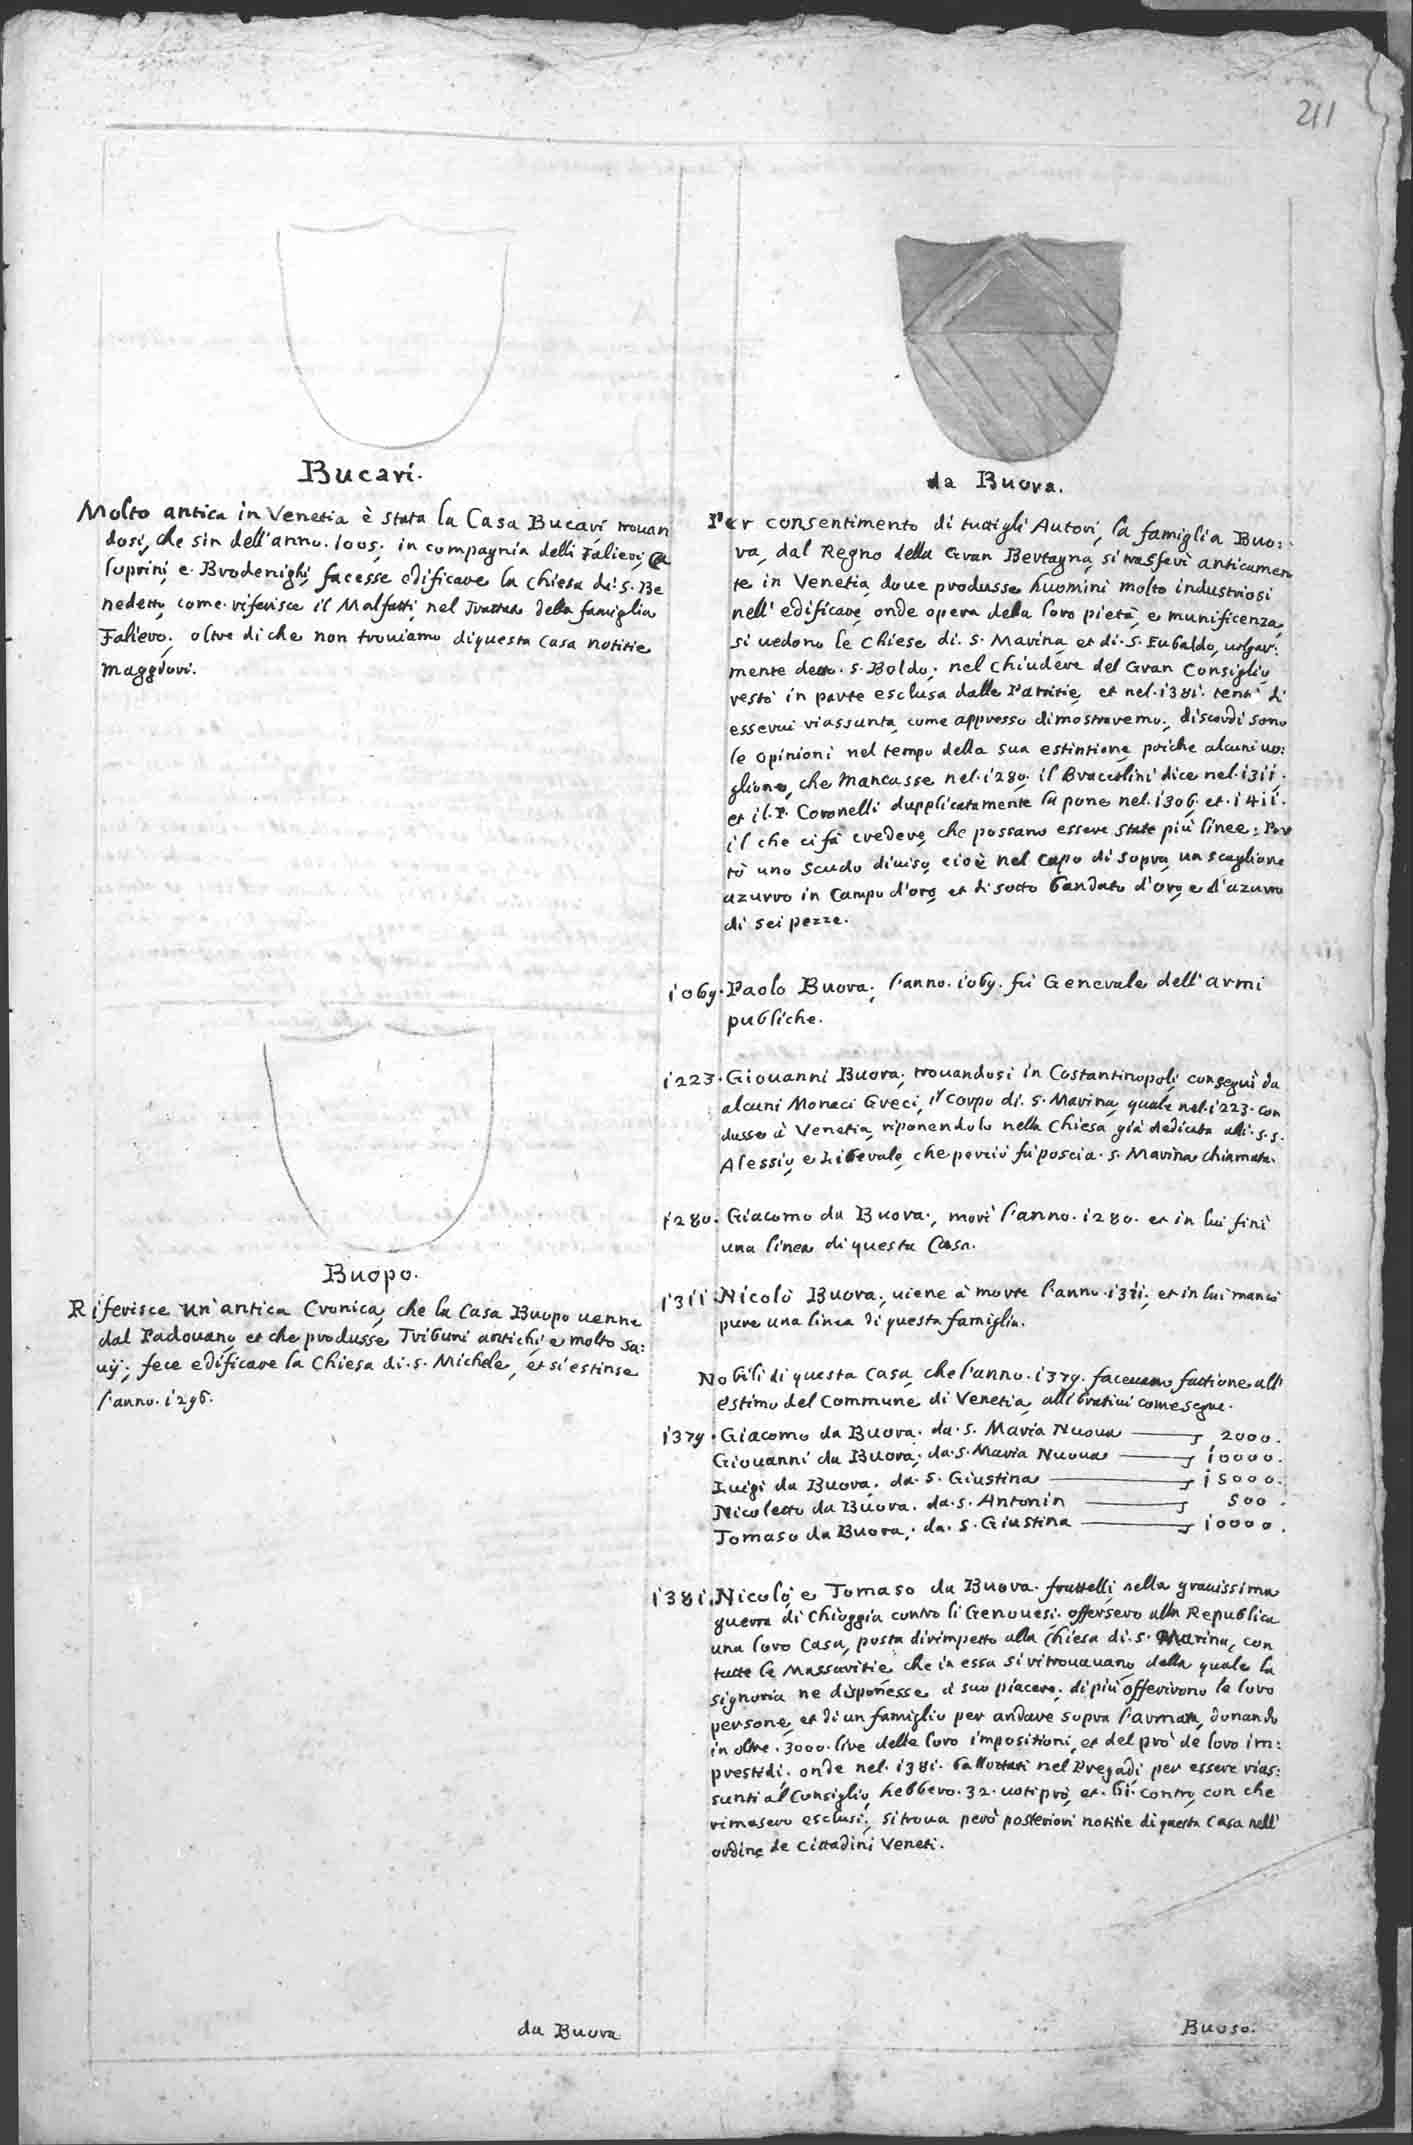 211
Bucari.
Molto antica in Venetia è stata la Casa Bucari, trouan
dosi, che sin dell'anno. 1005. in compagnia delli Falieri, Ca
luprini, e Brodenighi, facesse edificare la Chiesa di. S. Be
nedetto, come riferisce il Malfatti nel Trattato della famiglia
Faliero. oltre di che non trouiamo di questa Casa notitie
maggiori.
Buopo.
Riferisce un'antica Cronica, che la Casa Buopo uenne
dal Padouano, et che produsse Tribuni antichi, e molto sa:
uij; fece edificare la Chiesa di. S. Michele, et si estinse
l'anno. 1296.
da Buora
da Buora.
Per consentimento di tutti gli Autori, la famiglia Buo:
ra, dal Regno della Gran Bertagna, si trasferì anticamen
te in Venetia, doue produsse huomini molto industriosi
nell' edificare, onde opera della loro pietà, e munificenza,
si uedono le Chiese di. S. Marina, et di. S. Eubaldo, uolgar:
mente detto. S. Boldo; nel chiudere del Gran Consiglio,
restò in parte esclusa dalle Patritie, et nel. 1381. tentò di
esserui riassunta, come appresso dimostraremo. discordi sono
le opinioni nel tempo della sua estintione, poiche alcuni uo:
gliono, che mancasse nel. 1280. il Bracciolini dice nel. 1311.
et il. P. Coronelli dupplicatamente la pone nel. 1306. et. 1411.
il che ci fà credere, che possano essere state più linee; Por
tò uno Scudo diuiso, cioè nel capo di sopra, un scaglione
azurro in Campo d'oro, et di sotto bandato d'oro, e d'azurro
di sei pezze.
1069. Paolo Buora, l'anno. 1069. fù Generale dell'armi
publiche.
1223. Giouanni Buora, trouandosi in Costantinopoli, conseguì da
alcuni Monaci Greci, il corpo di. S. Marina, quale nel. 1223. con
dusse à Venetia, riponendolo nella Chiesa già dedicata alli. S. S.
Alessio, e Liberale, che perciò fù poscia. S. Marina chiamata.
1280. Giacomo da Buora, morì l'anno. 1280. et in lui finì
una linea di questa Casa.
1311. Nicolò Buora, uiene à morte l'anno. 1311. et in lui mancò
pure una linea di questa famiglia.
Nobili di questa Casa, che l'anno. 1379. faceuano fattione all'
estimo del Commune di Venetia, alli bratiui come segue.
1379. Giacomo da Buora. da. S. Maria Nuoua 2000.
Giouanni da Buora. da. S. Maria Nuoua 10000.
Luigi da Buora. da. S. Giustina 15000.
Nicoletto da Buora. da. S. Antonin 500.
Tomaso da Buora. da. S. Giustina 10000.
1381. Nicolò, e Tomaso da Buora. frattelli, nella grauissima
guerra di Chioggia contro li Genouesi. offersero alla Republica
una loro Casa, posta dirimpetto alla Chiesa di. S. Marina, con
tutte le Massaritie, che in essa si ritrouauano, della quale la
signoria ne disponesse à suo piacere. di più offerirono le loro
persone, et di un famiglio per andare sopra l'armata, donando
in oltre. 3000. lire delle loro impositioni, et del prò de loro im:
prestidi. onde nel. 1381. ballottati nel Pregadi, per essere rias:
sunti al Consiglio, hebbero. 32. uoti prò, et. 61. contro, con che
rimasero esclusi; si troua però posteriori notitie di questa Casa nell'
ordine de Cittadini Veneti.
Buoso.